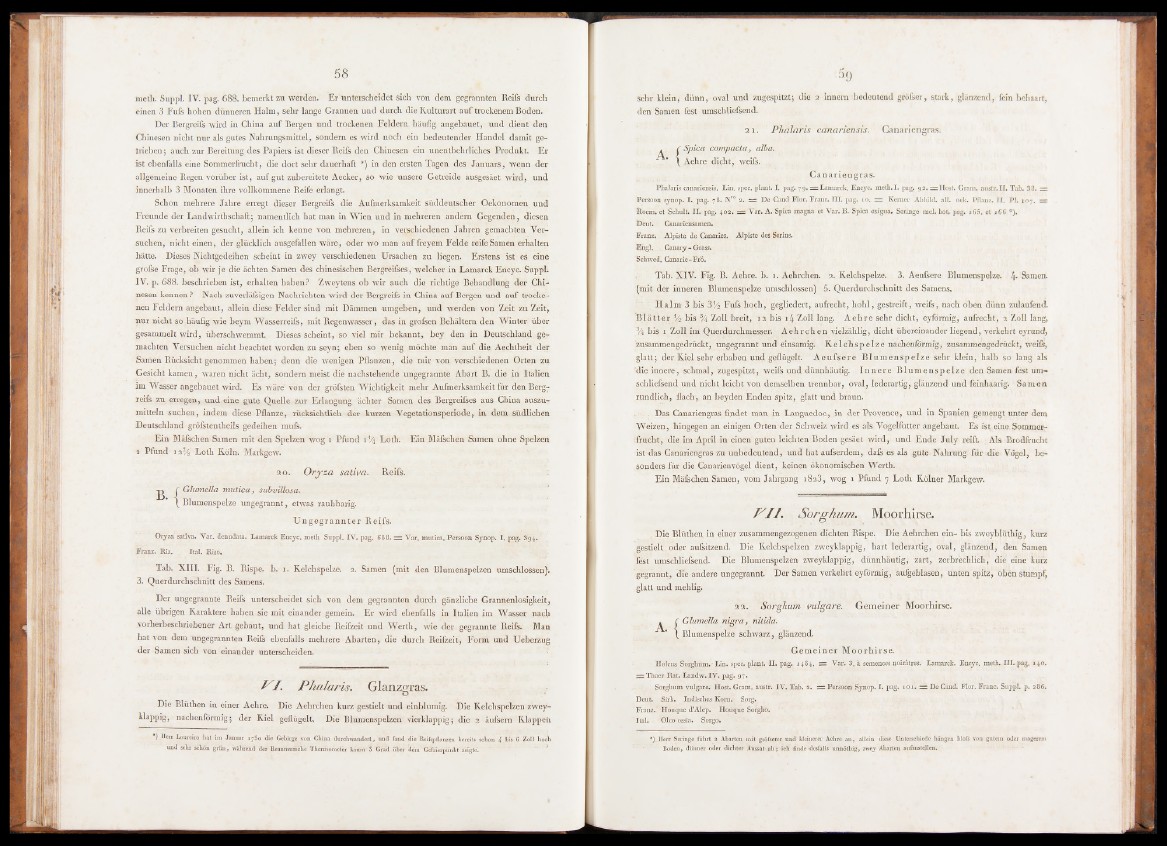 58
meth. Suppl. IV. pag. 688. bemerkt zu werden. Er unterscheidet sich von dem gegrannten Reiſs durch
einen 3 Fuſs hohen dünneren Halm, sehr lange Grannen und durch die Kulturart auf trockenem Boden.
Der Bergreiſs wird in China auf Bergen und trockenen Feldern häufig angebauet, und dient den
Chinesen nicht nur als gutes Nahrungsmittel, sondern es wird noch ein bedeutender Handel damit ge-
trieben; auch zur Bereitung des Papiers ist dieser Reiſs den Chinesen ein unentbehrliches Produkt. Er
ist ebenfalls eine Sommerfrucht, die dort sehr dauerhaft *) in den ersten Tagen des Januars, wenn der
allgemeine Regen vorüber ist, auf gut zubereitete Aecker, so wie unsere Getreide ausgesäet wird, und
innerhalb 3 Monaten ihre vollkommene Reife erlangt.
Schon mehrere Jahre erregt dieser Bergreiſs die Aufmerksamkeit süddeutscher Oekonomen und
Freunde der Landwirthschaft; namentlich hat man in Wien und in mehreren andern Gegenden, diesen
Reiſs zu verbreiten gesucht, allein ich kenne von mehreren, in verschiedenen Jahren gemachten Ver-
suchen, nicht einen, der glücklich ausgefallen wäre, oder wo man auf freyem Felde reife Samen erhalten
hätte. Dieses Nichtgedeihen scheint in zwey verschiedenen Ursachen zu liegen. Erstens ist es eine
groſse Frage, ob wir je die ächten Samen des chinesischen Bergreiſses, welcher in Lamarck Encyc. Suppl.
IV. p. 688. beschrieben ist, erhalten haben? Zweytens ob wir auch die richtige Behandlung der Chi-
nesen kennen? Nach zuverläſsigen Nachrichten wird der Bergreiſs in China auf Bergen und auf trocke-
nen Feldern angebaut, allein diese Felder sind mit Dämmen umgeben, und werden von Zeit zu Zeit,
nur nicht so häufig wie beym Wasserreiſs, mit Regenwasser, das in groſsen Behältern den Winter über
gesammelt wird, überschwemmt. Dieses scheint, so viel mir bekannt, bey den in Deutschland ge-
machten Versuchen nicht beachtet worden zu seyn; eben so wenig möchte man auf die Aechtheit der
Samen Rücksicht genommen haben; denn die wenigen Pflanzen, die mir von verschiedenen Orten zu
Gesicht kamen, waren nicht ächt, sondern meist die nachstehende ungegrannte Abart B. die in Italien
im Wasser angebauet wird. Es wäre von der gröſsten Wichtigkeit mehr Aufmerksamkeit für den Berg-
reiſs zu erregen, und eine gute Quelle zur Erlangung ächter Samen des Bergreiſses aus China auszu-
mitteln suchen, indem diese Pflanze, rücksichtlich der kurzen Vegetationsperiode, in dem südlichen
Deutschland gröſstentheils gedeihen muſs.
Ein Mäſschen Samen mit den Spelzen wog 1 Pfund 1½ Loth. Ein Mäſschen Samen ohne Spelzen
1 Pfund 12½ Loth Köln. Markgew.
20. Oryza sativa. Reiſs.
B. { Glumella mutica, subvillosa.
{ Blumenspelze ungegrannt, etwas rauhharig.
Ungegrannter Reiſs.
Oryza sativa. Var. denudata. Lamarck Encyc. meth. Suppl. IV. pag. 688. = Var. mutica, Persoon Synop. I. pag. 394.
Franz. Ris. Ital. Riso.
Tab. XIII. Fig. B. Rispe. b. 1. Kelchspelze. 2. Samen (mit den Blumenspelzen umschlossen).
3. Querdurchschnitt des Samens.
Der ungegrannte Reiſs unterscheidet sich von dem gegrannten durch gänzliche Grannenlosigkeit,
alle übrigen Karaktere haben sie mit einander gemein. Er wird ebenfalls in Italien im Wasser nach
vorherbeschriebener Art gebaut, und hat gleiche Reifzeit und Werth, wie der gegrannte Reiſs. Man
hat von dem ungegrannten Reiſs ebenfalls mehrere Abarten, die durch Reifzeit, Form und Ueberzug
der Samen sich von einander unterscheiden.
VI. Phalaris. Glanzgras.
Die Blüthen in einer Aehre. Die Aehrchen kurz gestielt und einblumig. Die Kelchspelzen zwey-
klappig, nachenförmig; der Kiel geflügelt. Die Blumenspelzen vierklappig; die 2 äuſsern Klappen
*) Herr Loureiro hat im Januar 1780 die Gebirge von China durchwandert, und fand die Reiſspflanzen bereits schon 4 bis 6 Zoll hoch
und sehr schön grün, während der Reaumursche Thermometer kaum 3 Grad über dem Gefrierpunkt zeigte.
59
sehr klein, dünn, oval und zugespitzt; die 2 innern bedeutend gröſser, stark, glänzend, fein behaart,
den Samen fest umschlieſsend.
21. Phalaris canariensis. Canariengras.
A. { Spica compacta, alba.
{ Aehre dicht, weiſs.
Canariengras.
Phalaris canariensis. Lin. spec. plant. I. pag. 79. = Lamarck, Encyc. meth. I. pag. 92. = Host. Gram. austr. II. Tab. 38. =
Persoon synop. I. pag. 78. N° 2. = De Cand Flor. Franc. III. pag. 10. = Kerner Abbild. all. oek. Pflanz. II. Pl. 107. =
Roem. et Schult. II. pag. 402. = Var. A. Spica magna et Var. B. Spica exigua. Seringe mel. bot. pag. 165. et 166 *).
Deut. Canariensamen.
Franz. Alpiste de Canaries. Alpiste des Serins.
Engl. Canary-Grass.
Schwed. Canarie-Frö.
Tab. XIV. Fig. B. Aehre. b. 1. Aehrchen. 2. Kelchspelze. 3. Aeuſsere Blumenspelze. 4. Samen.
(mit der inneren Blumenspelze umschlossen) 5. Querdurchschnitt des Samens.
Halm 3 bis 3½ Fuſs hoch, gegliedert, aufrecht, hohl, gestreift, weiſs, nach oben dünn zulaufend.
Blätter ½ bis ¾ Zoll breit, 12 bis 14 Zoll lang. Aehre sehr dicht, eyförmig, aufrecht, 2 Zoll lang,
¾ bis 1 Zoll im Querdurchmesser. Aehrchen vielzählig, dicht übereinander liegend, verkehrt eyrund,
zusammengedrückt, ungegrannt und einsamig. Kelchspelze nachenförmig, zusammengedrückt, weiſs,
glatt; der Kiel sehr erhaben und geflügelt. Aeuſsere Blumenspelze sehr klein, halb so lang als
die innere, schmal, zugespitzt, weiſs und dünnhäutig. Innere Blumenspelze den Samen fest um-
schlieſsend und nicht leicht von demselben trennbar, oval, lederartig, glänzend und feinhaarig. Samen
rundlich, flach, an beyden Enden spitz, glatt und braun.
Das Canariengras findet man in Languedoc, in der Provence, und in Spanien gemengt unter dem
Weizen, hingegen an einigen Orten der Schweiz wird es als Vogelfutter angebaut. Es ist eine Sommer-
frucht, die im April in einen guten leichten Boden gesäet wird, und Ende July reift. Als Brodfrucht
ist das Canariengras zu unbedeutend, und hat auſserdem, daſs es als gute Nahrung für die Vögel, be-
sonders für die Canarienvögel dient, keinen ökonomischen Werth.
Ein Mäſschen Samen, vom Jahrgang 1823, wog 1 Pfund 7 Loth Kölner Markgew.
VII. Sorghum. Moorhirse.
Die Blüthen in einer zusammengezogenen dichten Rispe. Die Aehrchen ein- bis zweyblüthig, kurz
gestielt oder aufsitzend. Die Kelchspelzen zweyklappig, hart lederartig, oval, glänzend, den Samen
fest umschlieſsend. Die Blumenspelzen zweyklappig, dünnhäutig, zart, zerbrechlich, die eine kurz
gegrannt, die andere ungegrannt. Der Samen verkehrt eyförmig, aufgeblasen, unten spitz, oben stumpf,
glatt und mehlig.
22. Sorghum vulgare. Gemeiner Moorhirse.
A. { Glumella nigra, nitida.
{ Blumenspelze schwarz, glänzend.
Gemeiner Moorhirse.
Holcus Sorghum. Lin. spec. plant. II. pag. 1484. = Var. 3. à semences noirâtres. Lamarck. Encyc. meth. III. pag. 140.
= Thaer Rat. Landw. IV. pag. 97.
Sorghum vulgare. Host. Gram. austr. IV. Tab. 2. = Persoon Synop. I. pag. 101. = De Cand. Flor. Franc. Suppl. p. 286.
Deut. Sirk. Indisches Korn. Sorg.
Franz. Houque d'Alep. Houque Sorgho.
Ital. Olco resio. Sorgo.
*) Herr Seringe führt 2 Abarten mit gröſserer und kleinerer Aehre an, allein diese Unterschiede hängen bloſs von gutem oder magerem
Boden, dünner oder dichter Aussaat ab; ich finde deſsfalls unnöthig, zwey Abarten aufzustellen.